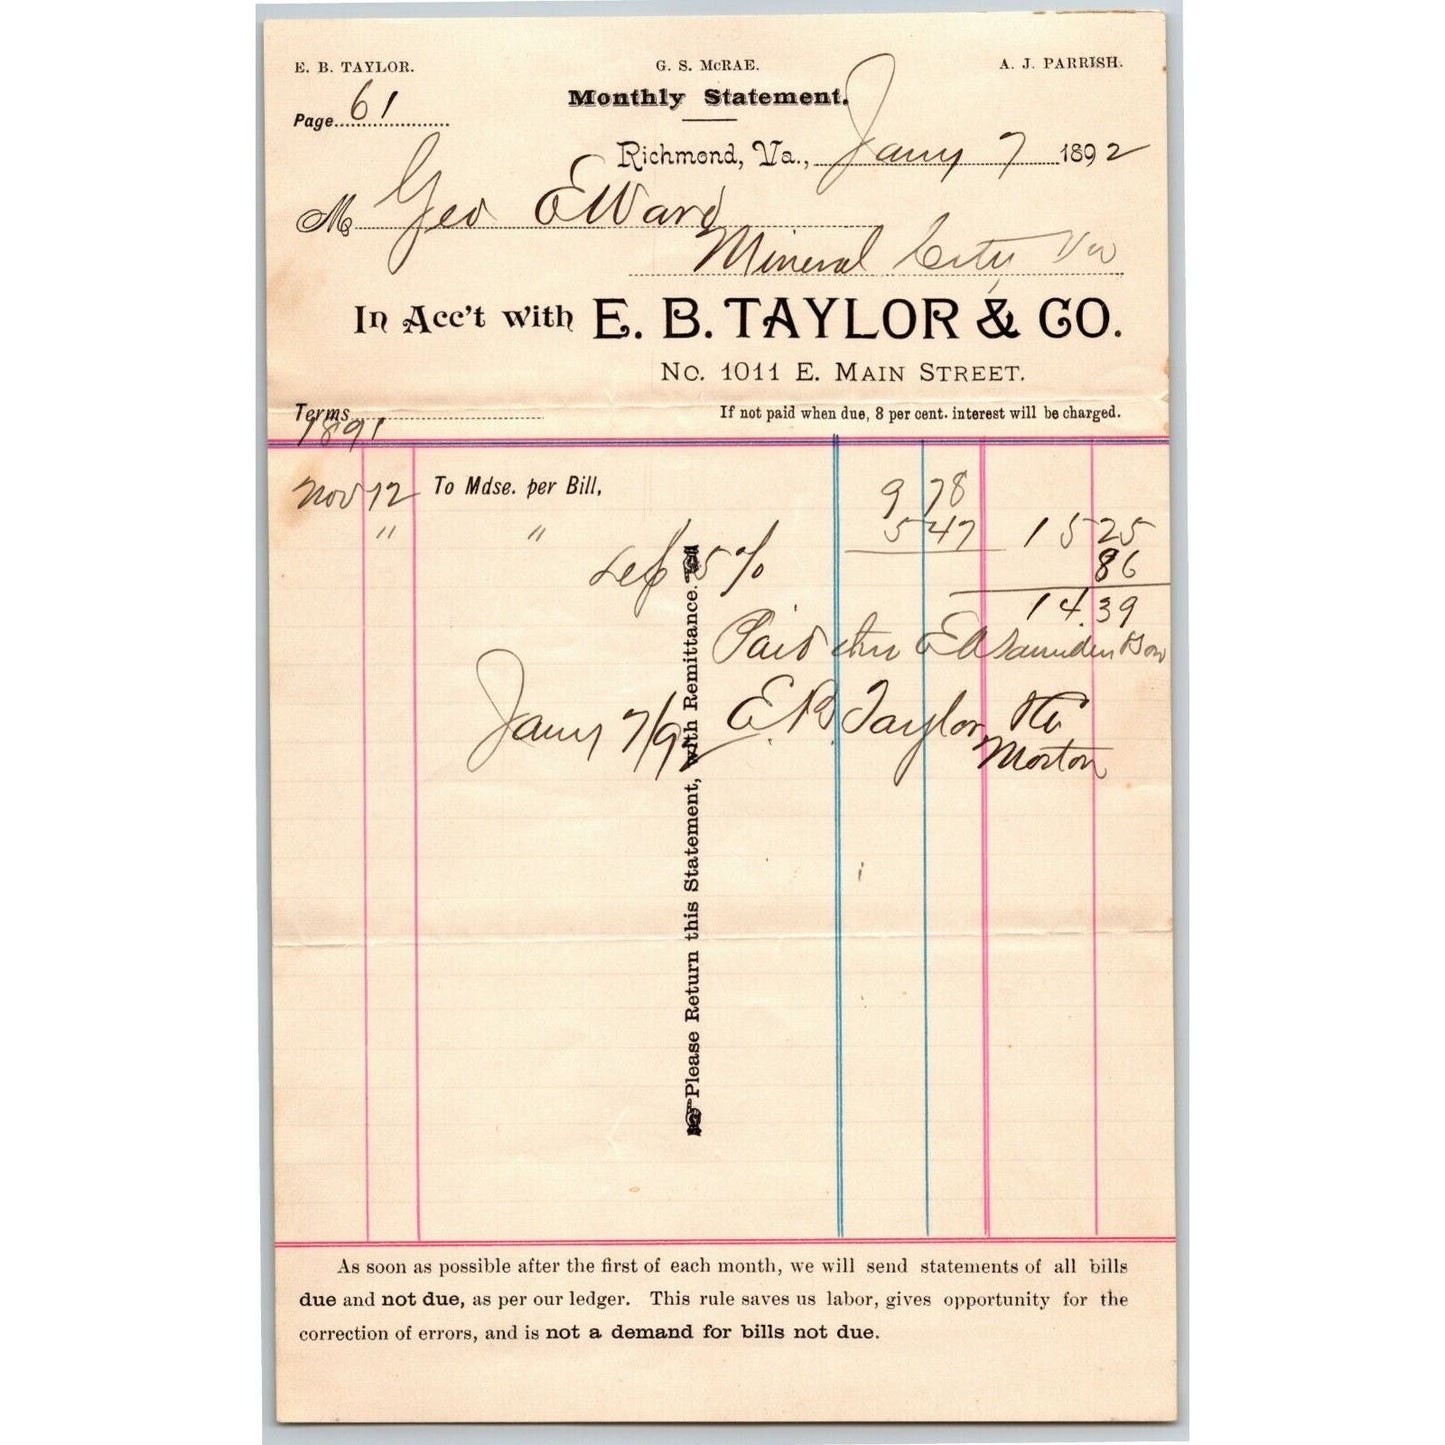 E. B. TAYLOR. G. S. McRAE. A. J. PARRISH.
Monthly Statement.
Page 61
Richmond, Va., Jany 7 1892
M Geo E Ward
Mineral City Va
In Acc't with E. B. TAYLOR & CO.
No. 1011 E. MAIN STREET.
Terms
If not paid when due, 8 per cent. interest will be charged.
1891
Nov 12 To Mdse. per Bill, 9 78
" " 5 47 15 25
Less 5 % 86
14.39
Paid thru E A Son
Jany 7/92 E. B. Taylor & Co
Morton
Please Return this Statement, with Remittance.
As soon as possible after the first of each month, we will send statements of all bills
due and not due, as per our ledger. This rule saves us labor, gives opportunity for the
correction of errors, and is not a demand for bills not due.